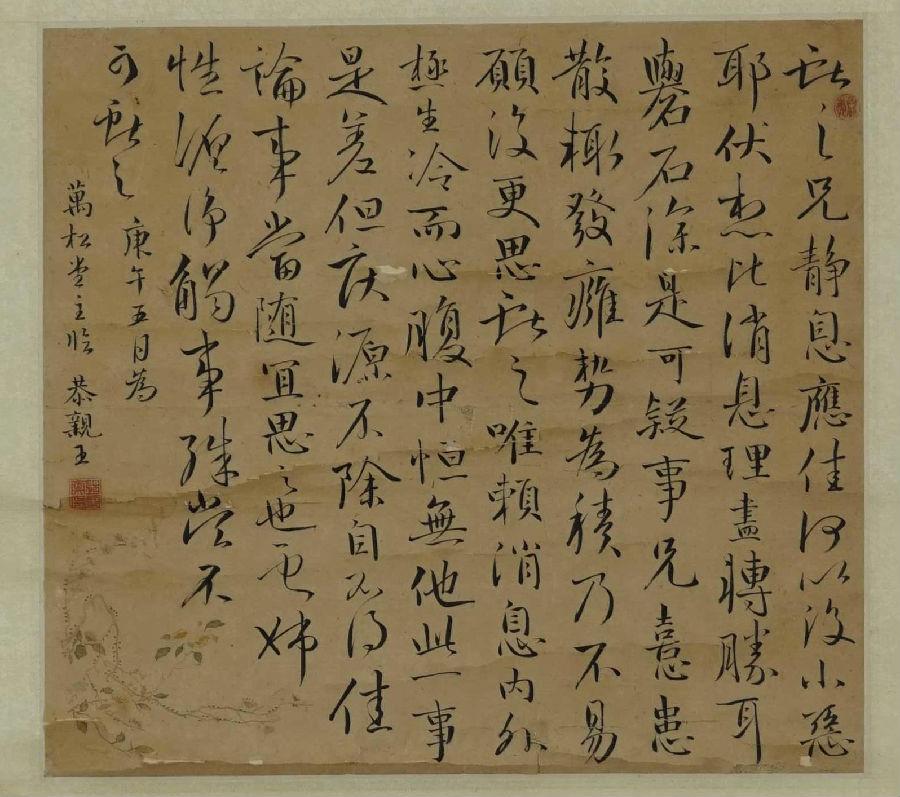 献之兄静息應佳何以復小惡
耶伏想比消息理盡轉勝耳
礜石深是可疑事兄憙患
散輒發癰勢為積乃不易
願復更思献之唯賴消息内外
極生冷而心腹中恒無他此一事
是差但疾源不除自不得佳
論事當随宜思之也
姊性纏綿觸事殊當不
可献之
庚午五月為
萬松堂主臨 恭親王